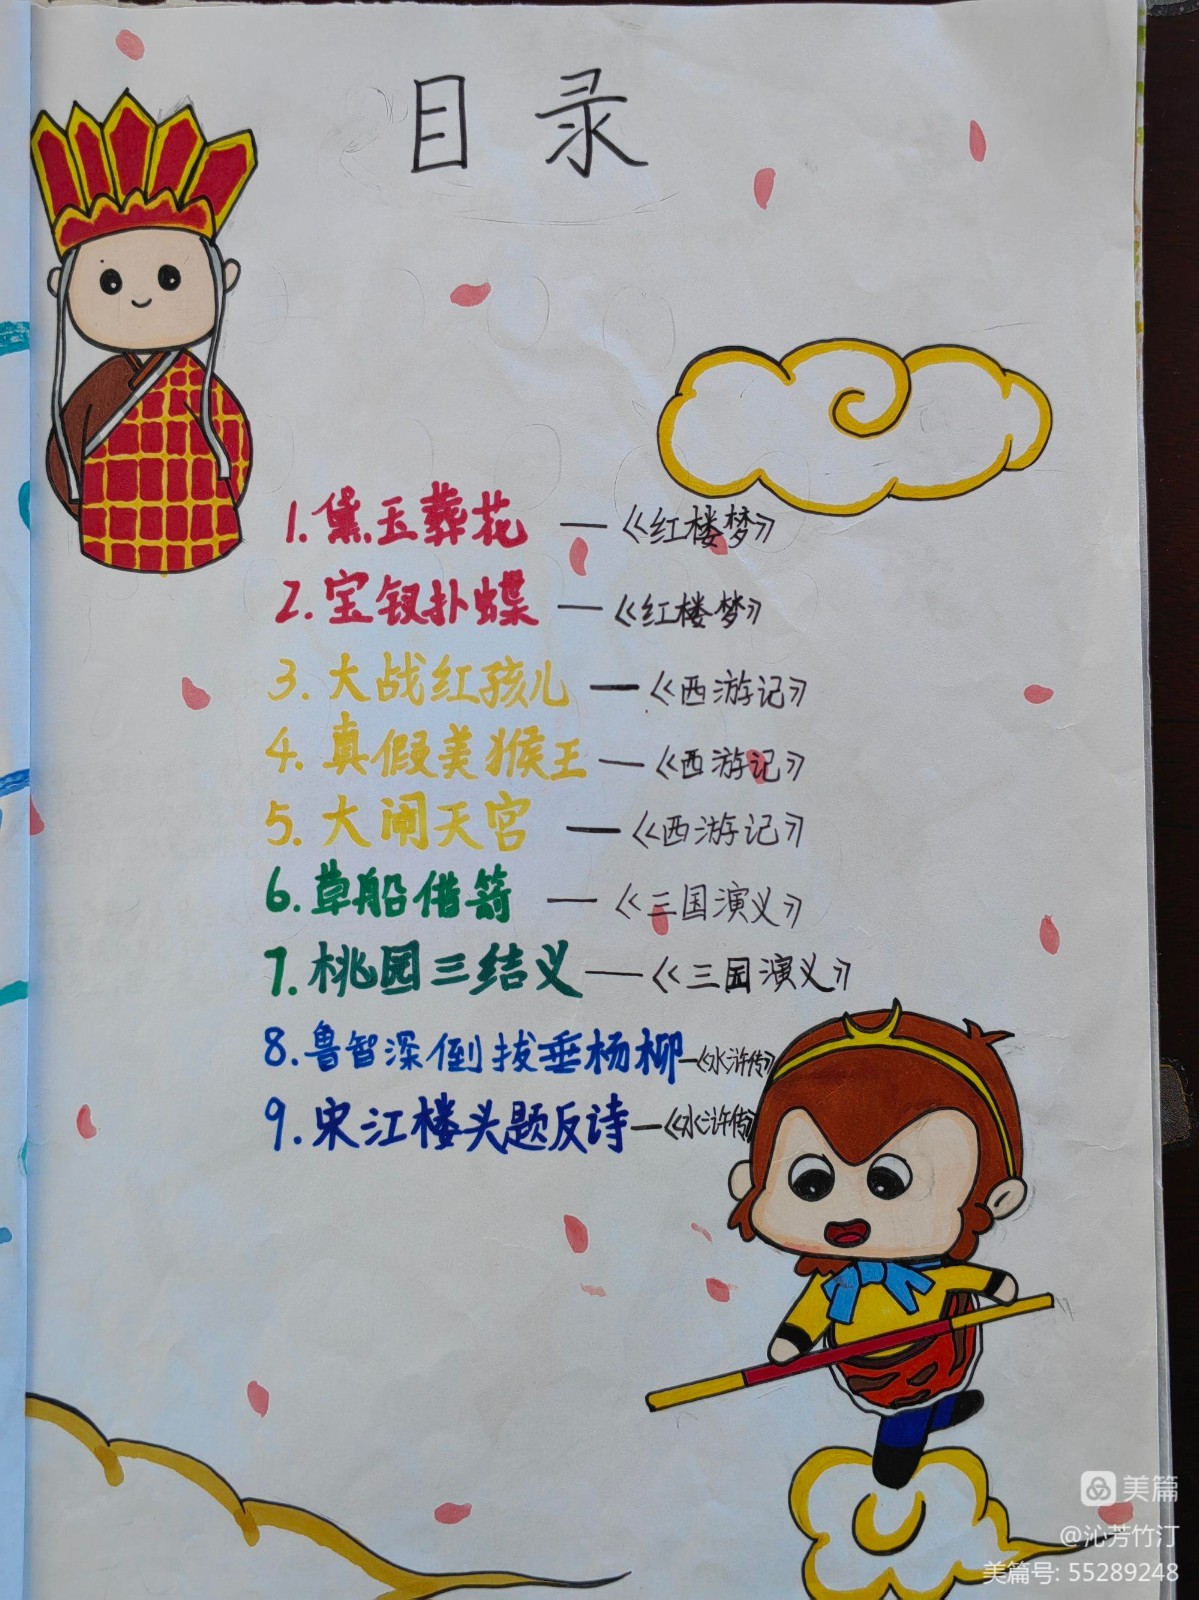 目录
1.黛玉葬花 —《红楼梦》
2.宝钗扑蝶 —《红楼梦》
3.大战红孩儿 —《西游记》
4.真假美猴王 —《西游记》
5.大闹天宫 —《西游记》
6.草船借箭 —《三国演义》
7.桃园三结义 —《三国演义》
8.鲁智深倒拔垂杨柳—《水浒传》
9.宋江楼头题反诗—《水浒传》
美篇
@沁芳竹汀
美篇号: 55289248